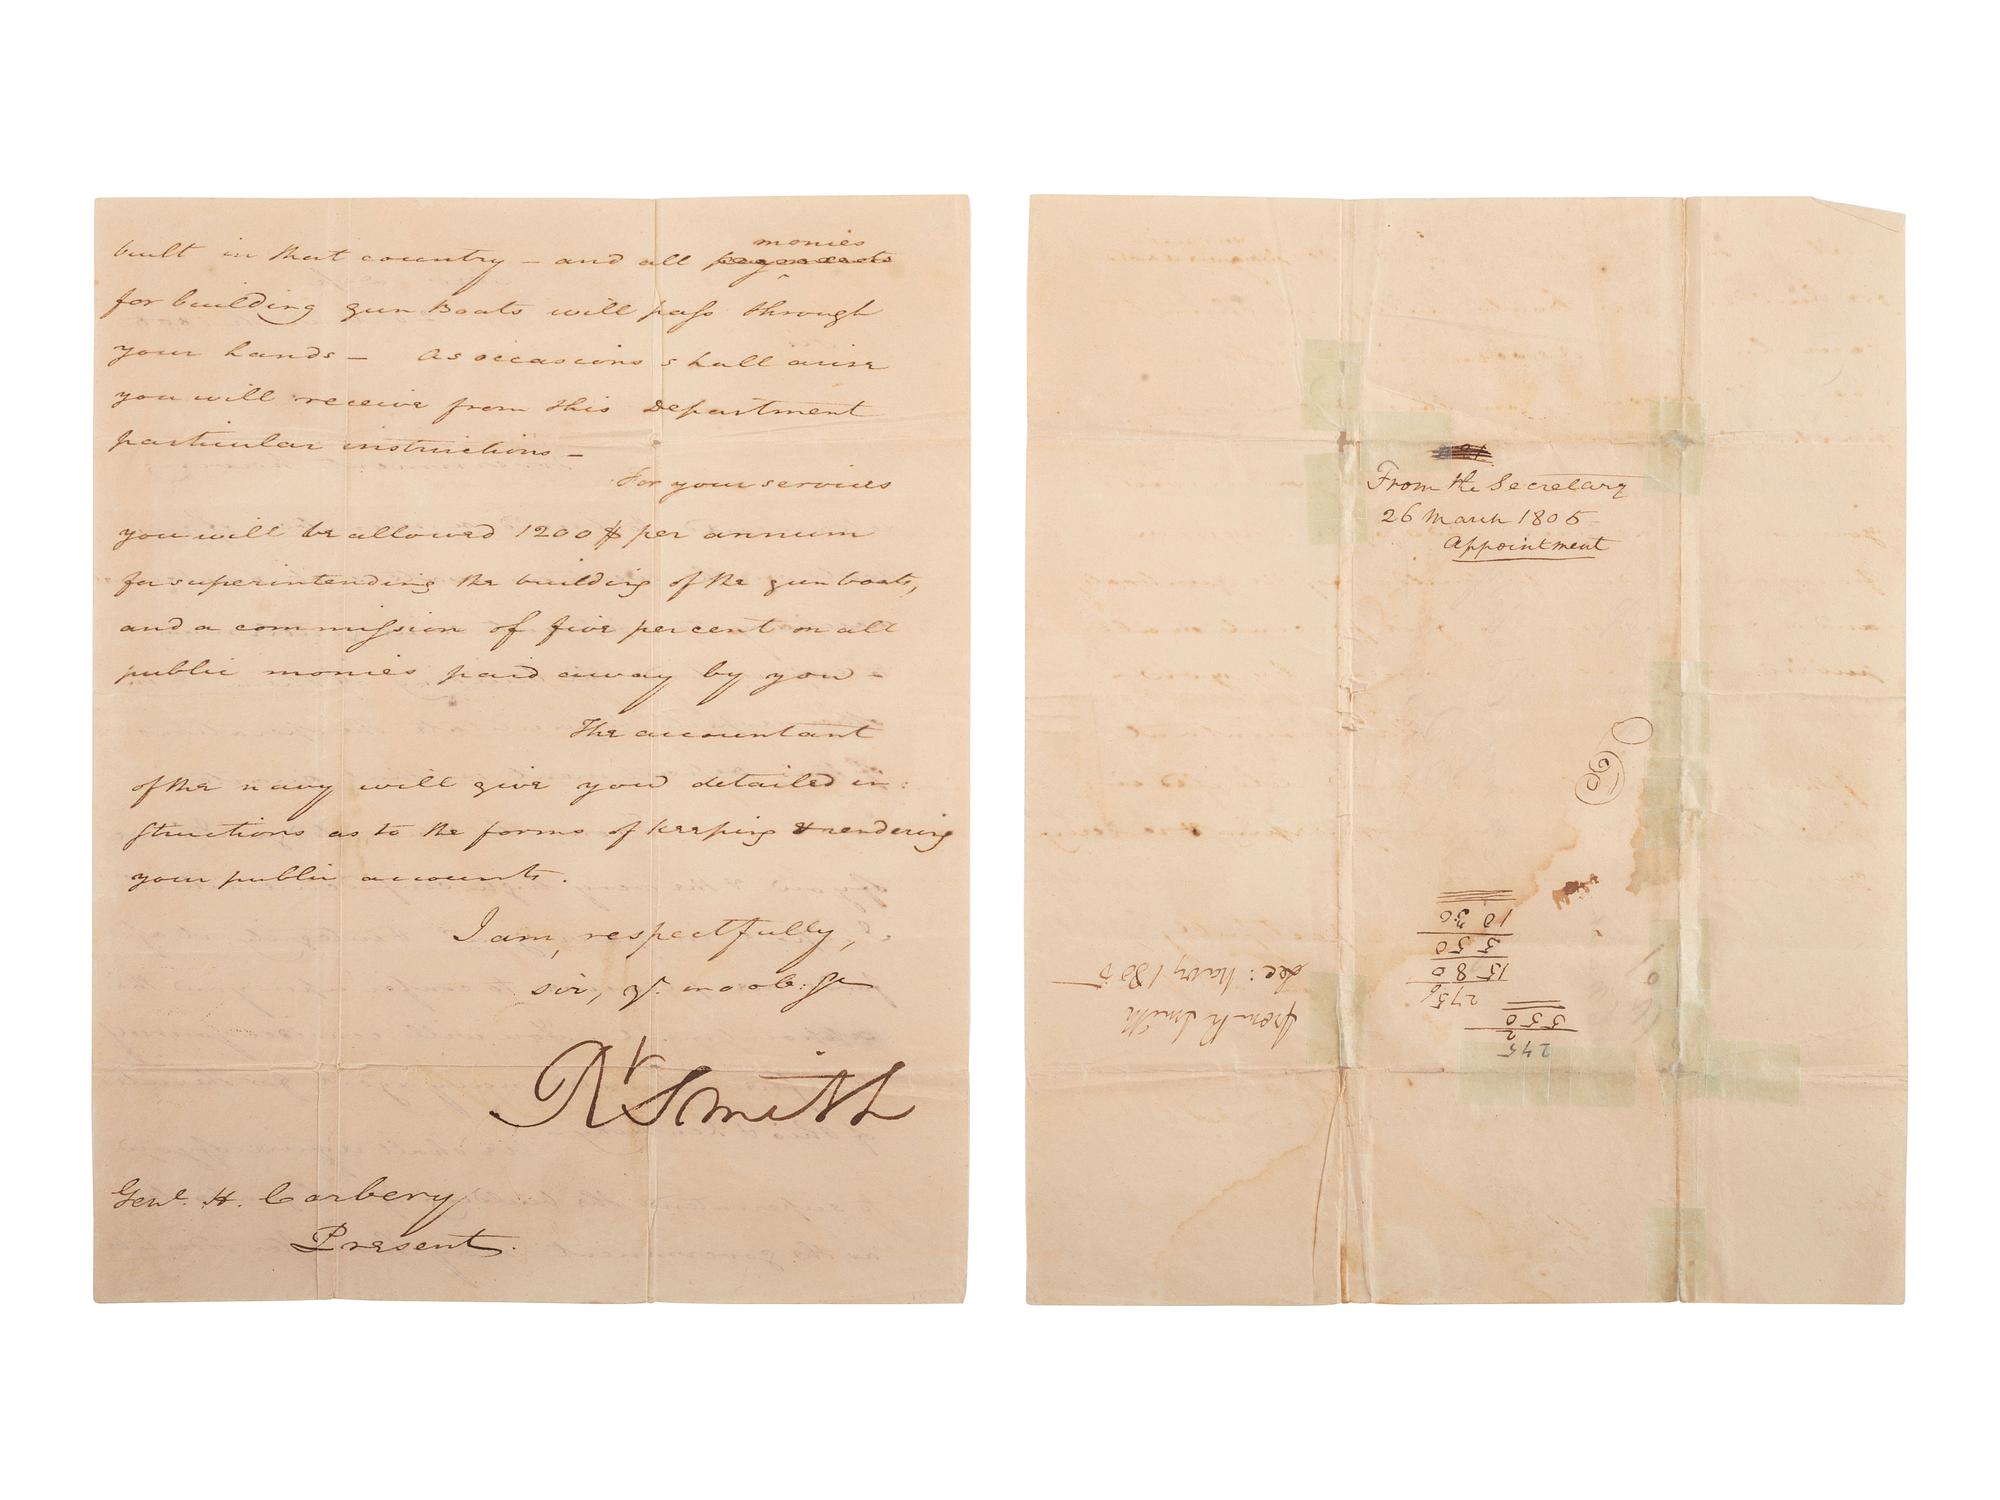 monies
built in that country – and all payments
for building gun Boats will pass through
your hands – As occasions shall arise
you will receive from this Department
particular instructions –
For your services
you will be allowed 1200 $ per annum
for superintending the building of the gun boats,
and a commission of five per cent on all
public monies paid away by you –
The accountant
of the navy will give you detailed in:
structions as to the forms of keeping & rendering
your public accounts.
I am, respectfully,
sir, yr. mo ob: st
Rt Smith
Genl. H. Carbery
Present.
From the Secretary
26 March 1805
Appointment
from R Smith
Sec: Navy 1805
245
2
550
2756
1580
550
1030